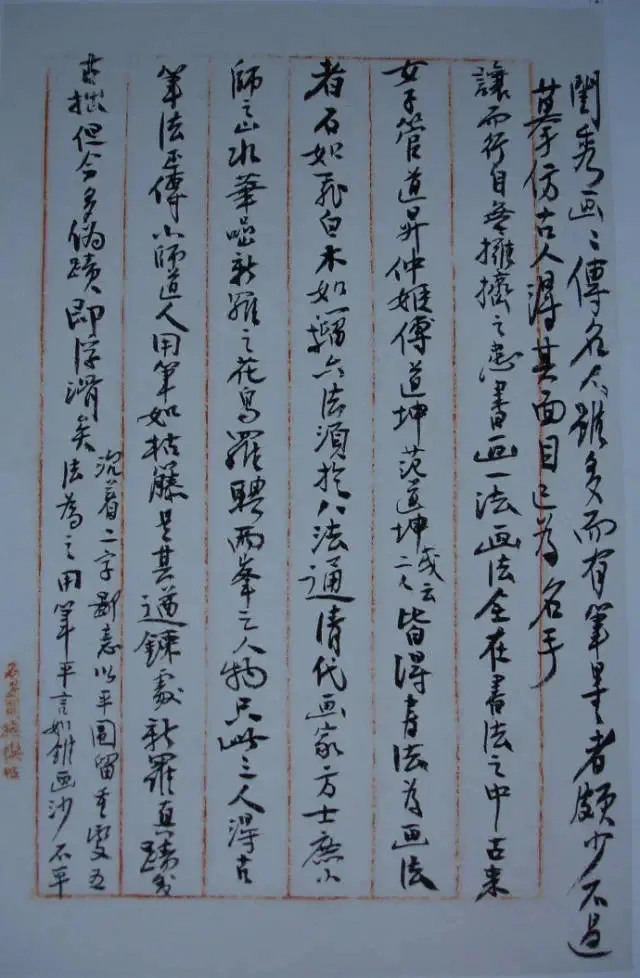 閨秀画〻傳名人雖多而有筆墨者頗少不過
摹仿古人得其面目已為名手
讓而行自無擁擠之患書画一法画法全在書法之中古来
女子管道昇仲姬傅道坤范道坤或云二人皆得書法為画法
者石如飛白木如籀六法須於八法通清代画家方士庶小
師之山水華喦新羅之花鳥羅聘兩峯之人物只此三人得古
筆法正傳小師道人用筆如枯藤是其遒鍊處新羅真蹟或
古拙但今多偽蹟即浮滑矣
沉着二字鄙意以平圓留重變五
法為之用筆平言如錐画沙不平